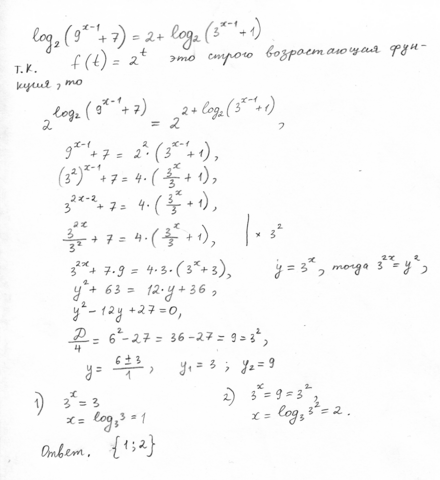 log₂(9^(x-1) + 7) = 2 + log₂(3^(x-1) + 1)
т.к. f(t) = 2^t это строго возрастающая фун-
кция, то
2^(log₂(9^(x-1) + 7)) = 2^(2 + log₂(3^(x-1) + 1)),
9^(x-1) + 7 = 2²·(3^(x-1) + 1),
(3²)^(x-1) + 7 = 4·(3^x/3 + 1),
3^(2x-2) + 7 = 4·(3^x/3 + 1),
3^(2x)/3² + 7 = 4·(3^x/3 + 1), | × 3²
3^(2x) + 7·9 = 4·3·(3^x + 3), y = 3^x, тогда 3^(2x) = y²,
y² + 63 = 12·y + 36,
y² - 12y + 27 = 0,
Д/4 = 6² - 27 = 36 - 27 = 9 = 3²,
y = (6 ± 3)/1, y₁ = 3; y₂ = 9
1) 3^x = 3 2) 3^x = 9 = 3²,
x = log₃3 = 1 x = log₃3² = 2.
Ответ. {1; 2}